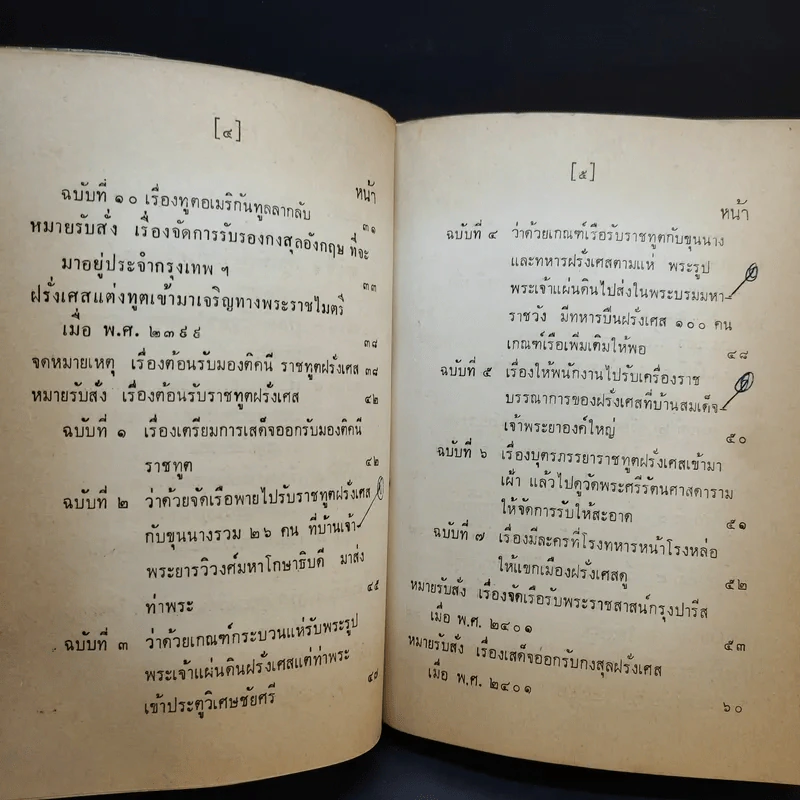 [๔]
หน้า
ฉบับที่ ๑๐ เรื่องทูตอเมริกันทูลลากลับ ๓๑
หมายรับสั่ง เรื่องจัดการรับรองกงสุลอังกฤษ ที่จะ
มาอยู่ประจำกรุงเทพ ฯ ๓๓
ฝรั่งเศสแต่งทูตเข้ามาเจริญทางพระราชไมตรี
เมื่อ พ.ศ. ๒๓๙๙ ๓๘
จดหมายเหตุ เรื่องต้อนรับมองติคนี ราชทูตฝรั่งเศส ๓๘
หมายรับสั่ง เรื่องต้อนรับราชทูตฝรั่งเศส ๔๒
ฉบับที่ ๑ เรื่องเตรียมการเสด็จออกรับมองติคนี
ราชทูต ๔๒
ฉบับที่ ๒ ว่าด้วยจัดเรือพายไปรับราชทูตฝรั่งเศส
กับขุนนางรวม ๒๖ คน ที่บ้านเจ้า
พระยารวิวงศ์มหาโกษาธิบดี มาส่ง
ท่าพระ ๔๕
ฉบับที่ ๓ ว่าด้วยเกณฑ์กระบวนแห่รับพระรูป
พระเจ้าแผ่นดินฝรั่งเศสแต่ท่าพระ
เข้าประตูวิเศษชัยศรี ๔๗
[๕]
หน้า
ฉบับที่ ๔ ว่าด้วยเกณฑ์เรือรับราชทูตกับขุนนาง
และทหารฝรั่งเศสตามแห่ พระรูป
พระเจ้าแผ่นดินไปส่งในพระบรมมหา
ราชวัง มีทหารปืนฝรั่งเศส ๑๐๐ คน
เกณฑ์เรือเพิ่มเติมให้พอ ๔๘
ฉบับที่ ๕ เรื่องให้พนักงานไปรับเครื่องราช
บรรณาการของฝรั่งเศสที่บ้านสมเด็จ
เจ้าพระยาองค์ใหญ่ ๕๐
ฉบับที่ ๖ เรื่องบุตรภรรยาราชทูตฝรั่งเศสเข้ามา
เฝ้า แล้วไปดูวัดพระศรีรัตนศาสดาราม
ให้จัดการรับให้สะอาด ๕๑
ฉบับที่ ๗ เรื่องมีละครที่โรงทหารหน้าโรงหล่อ
ให้แขกเมืองฝรั่งเศสดู ๕๒
หมายรับสั่ง เรื่องจัดเรือรับพระราชสาสน์กรุงปารีส
เมื่อ พ.ศ. ๒๔๐๑ ๕๓
หมายรับสั่ง เรื่องเสด็จออกรับกงสุลฝรั่งเศส
เมื่อ พ.ศ. ๒๔๐๑ ๖๐